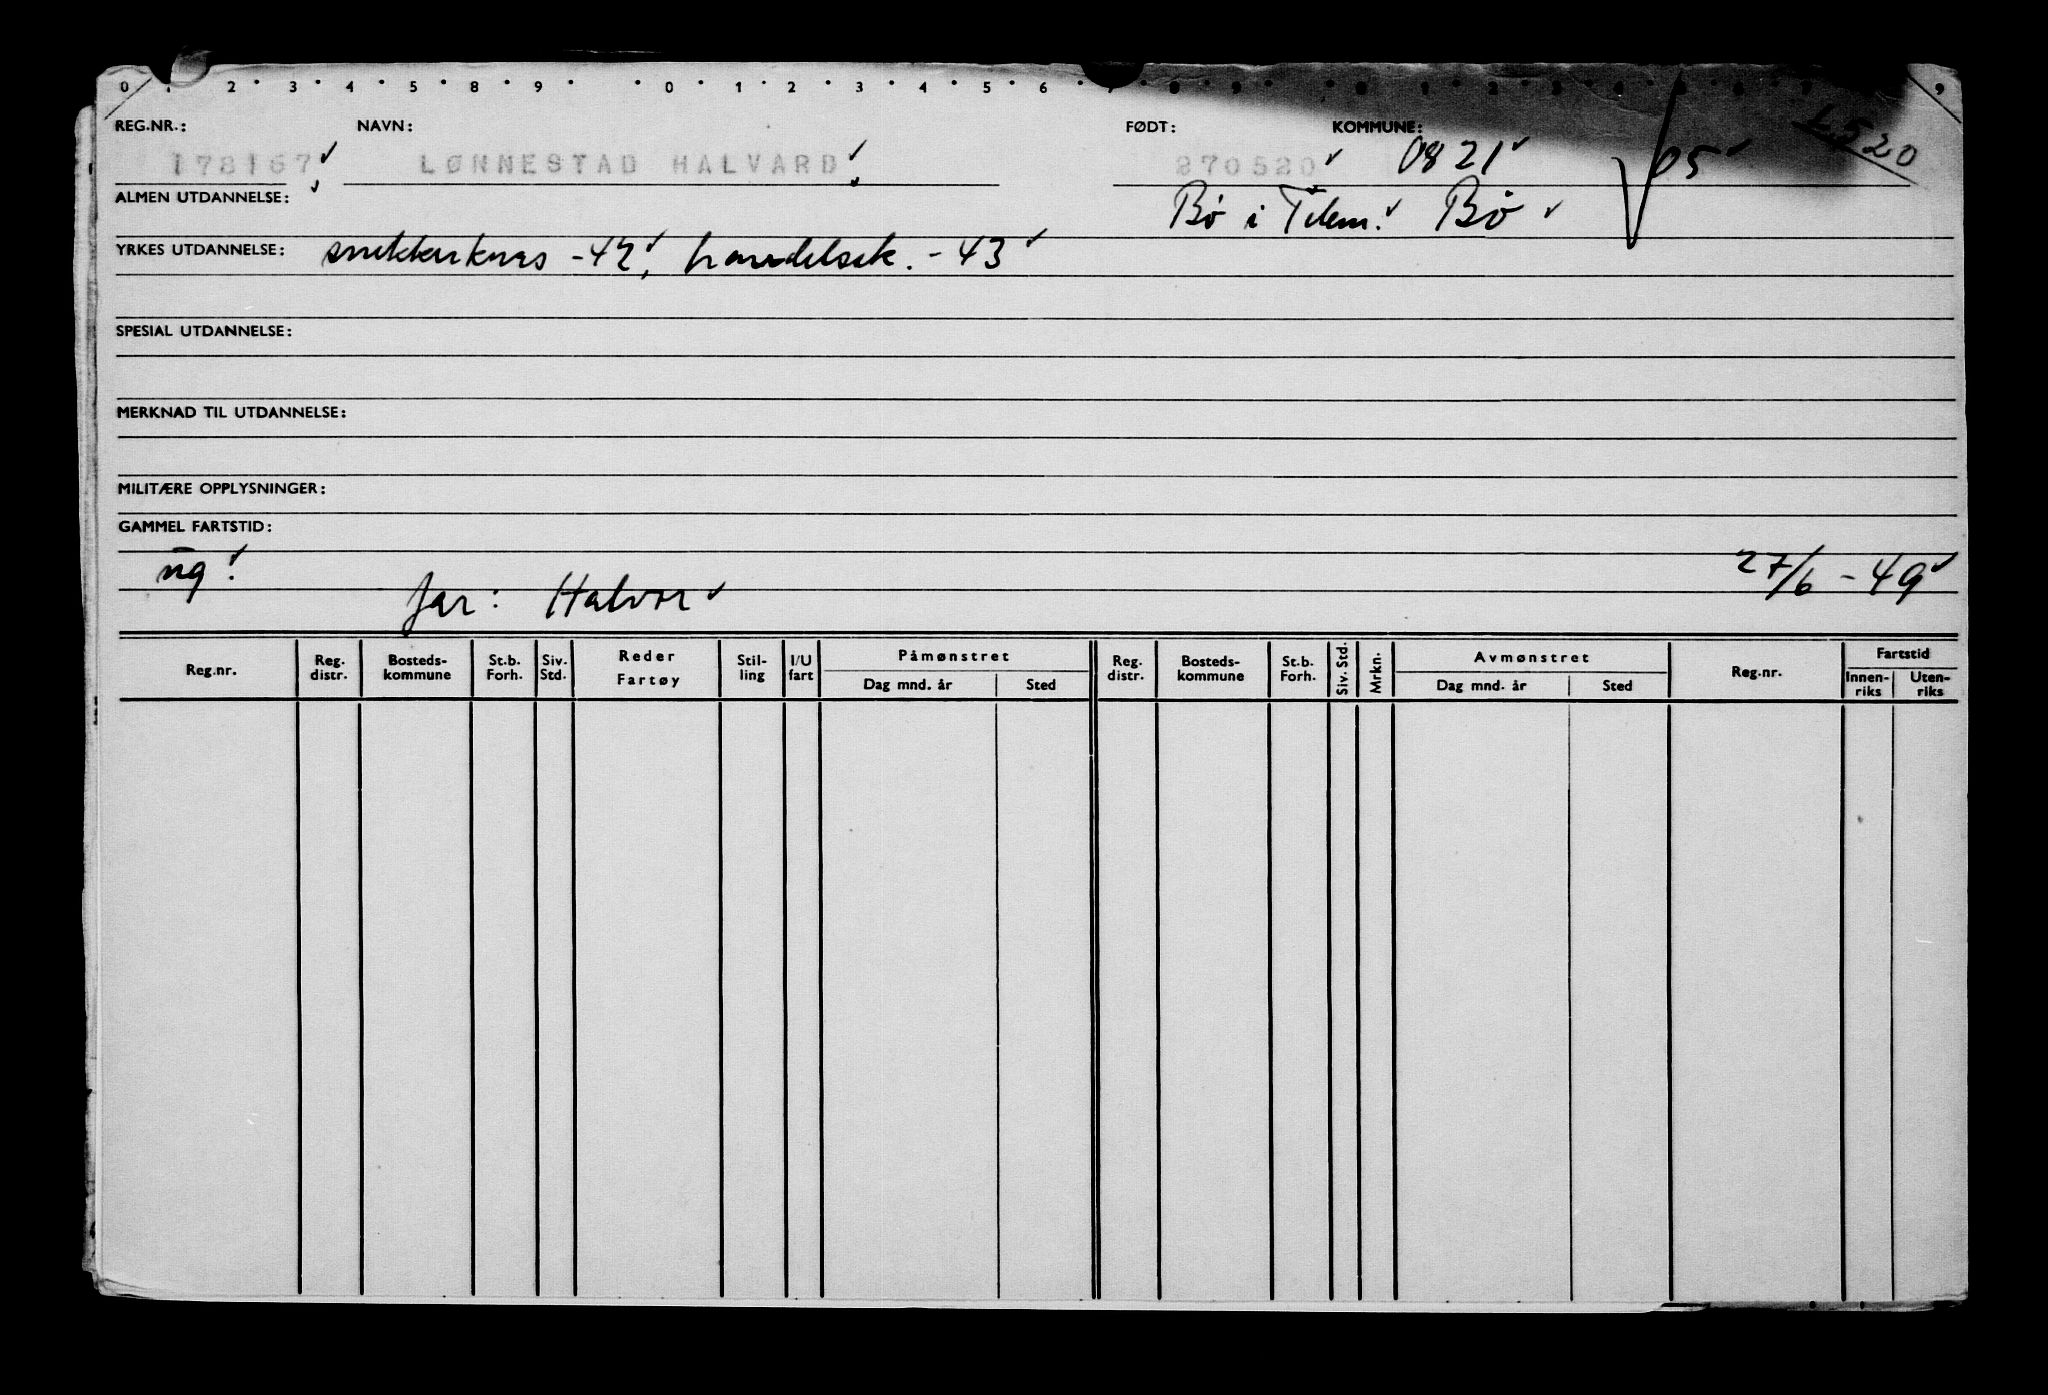 0 . 2 3 4 5 8 9 0 1 2 3 4 5 6
REG.NR.: NAVN: FØDT: KOMMUNE:
178167 LØNNESTAD HALVARD 270520 0821 05
ALMEN UTDANNELSE: Bø i Telem. Bø
YRKES UTDANNELSE: snekkerkurs -42, handelssk. -43
SPESIAL UTDANNELSE:
MERKNAD TIL UTDANNELSE:
MILITÆRE OPPLYSNINGER:
GAMMEL FARTSTID:
ug. 27/6 -49
far: Halvor
Reg.nr. Reg. distr. Bosteds-kommune St.b. Forh. Siv. Std. Reder Fartøy Stil-ling I/U fart Påmønstret Dag mnd. år Sted Reg. distr. Bosteds-kommune St.b. Forh. Siv. Std. Mrkn. Avmønstret Dag mnd. år Sted Reg.nr. Fartstid Innen-riks Uten-riks